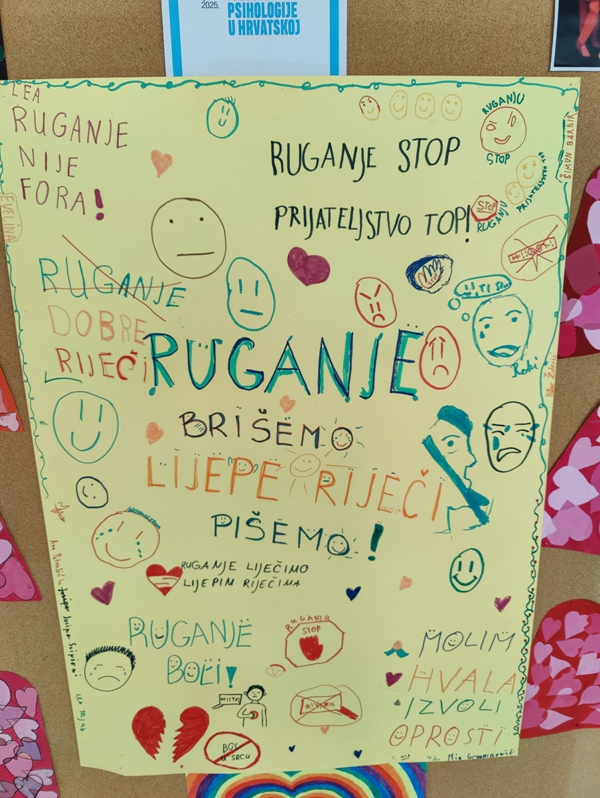 2025.
PSIHOLOGIJE
U HRVATSKOJ
LEA
RUGANJE
NIJE
FORA!
RUGANJU
STOP
ŠIMUN BARBIR
RUGANJE STOP
PRIJATELJSTVO TOP!
STOP
RUGANJU
RUGANJE
DOBRE
RIJEČI
TI SI
Roki
RUGANJE
BRIŠEMO
LIJEPE RIJEČI
PIŠEMO!
RUGANJE LIJEČIMO
LIJEPIM RIJEČIMA
RUGANJE
BOLI!
RUGANJU
STOP
BOL
U SRCU
MOLIM
HVALA
IZVOLI
OPROSTI